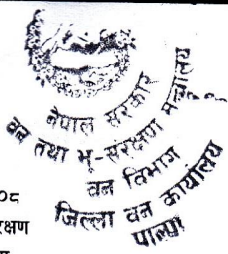 नेपाल सरकार
वन तथा भू-संरक्षण मन्त्रालय
वन विभाग
जिल्ला वन कार्यालय
पाल्पा
०८
रक्षण